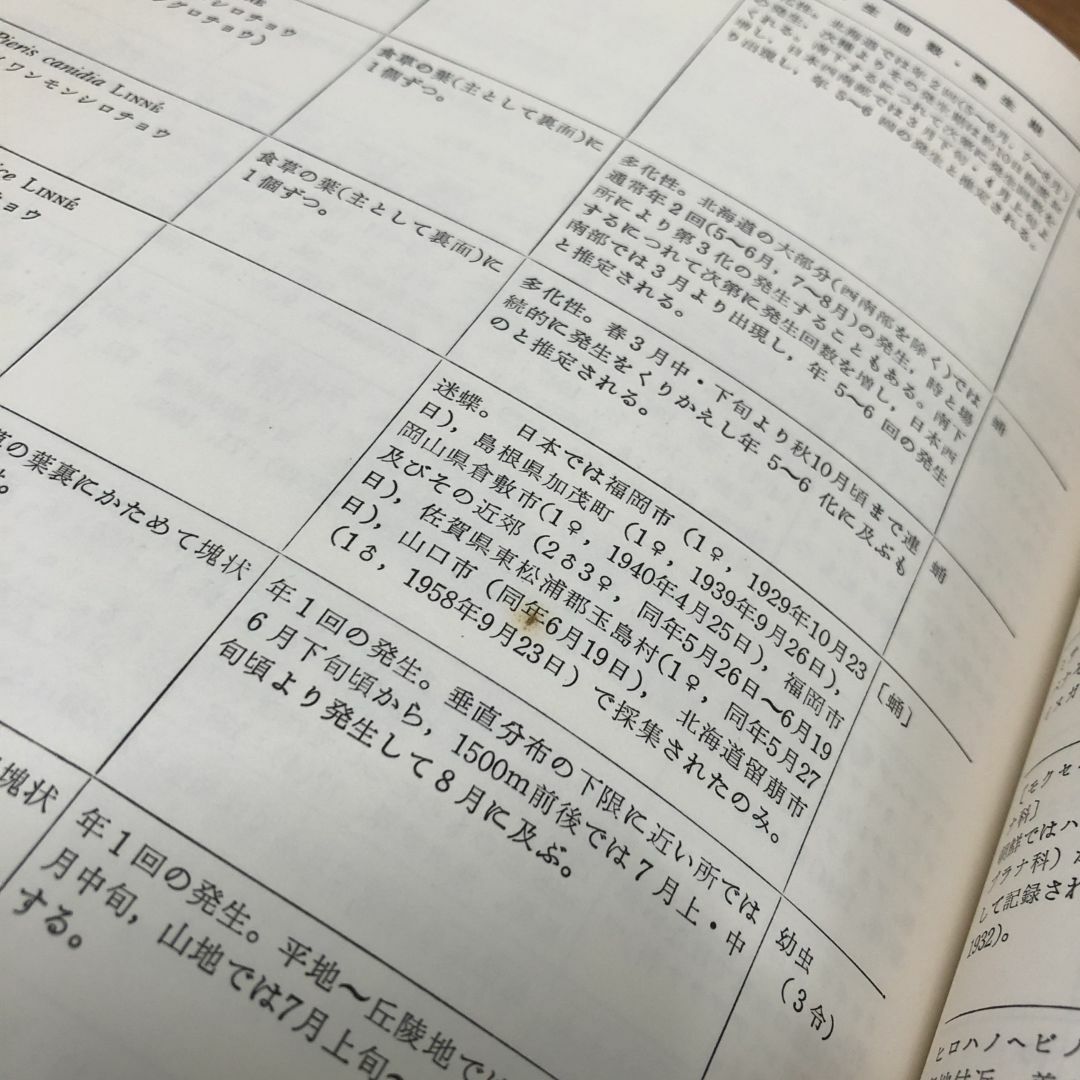 発生回数・発生期
Pieris canidia LINNÉ
ワンモンシロチョウ
食草の葉(主として裏面)に
1個ずつ。
多化性。北海道の大部分(西南部を除く)では
通常年2回(5〜6月, 7〜8月)の発生, 時と場
所により第3化の発生することもある。南下
するにつれて次第に発生回数を増し, 日本西
南部では3月より出現し, 年 5〜6 回の発生
と推定される。
蛹
LINNÉ
チョウ
食草の葉(主として裏面)に
1個ずつ。
多化性。春3月中・下旬より秋10月頃まで連
続的に発生をくりかえし年 5〜6 化に及ぶも
のと推定される。
蛹
迷蝶。 日本では福岡市 (1♀, 1929年10月23
日), 島根県加茂町 (1♀, 1939年9月26日),
岡山県倉敷市(1♀, 1940年4月25日), 福岡市
及びその近郊 (2♂3♀, 同年5月26日〜6月19
日), 佐賀県東松浦郡玉島村(1♀, 同年5月27
日), 山口市 (同年6月19日), 北海道留萠市
(1♂, 1958年9月23日) で採集されたのみ。
〔蛹〕
の葉裏にかためて塊状
年1回の発生。垂直分布の下限に近い所では
6月下旬頃から, 1500m前後では7月上・中
旬頃より発生して8月に及ぶ。
幼虫
(3令)
塊状
年1回の発生。平地〜丘陵地では
月中旬, 山地では7月上旬〜
する。
〔モクセ
ナ科〕
朝鮮ではハ
グラナ科)
して記録され
1932)。
ヒロハノヘビノ